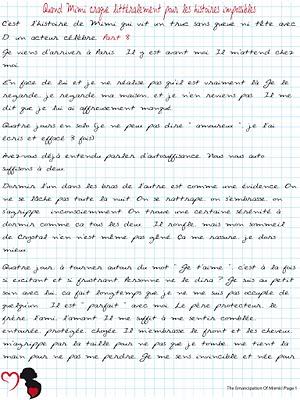 Quand Mimi craque littéralement pour les histoires impossibles
C'est l'histoire de Mimi qui vit un truc sans queue ni tête avec
D un acteur célèbre. Part 8
Je viens d'arriver à Paris. Il y est avant moi. Il m'attend chez
moi.
En face de lui et je ne réalise pas qu'il est vraiment là. Je le
regarde, je regarde ma maison, et je n'en reviens pas. Il me
dit que je lui ai affreusement manqué.
Quatre jours en soh. Je ne peux pas dire " amoureux " je l'ai
écris et effacé 3 fois).
Avez-vous déjà entendu parler d'autosuffisance. Nous nous auto
suffisons à deux.
Dormir l'un dans les bras de l'autre est comme une évidence. On
ne se lâche pas toute la nuit. On se rattrape, on s'embrasse, on
s'agrippe inconsciemment. On trouve une certaine sérénité à
dormir comme ça tous les deux. Il ronfle, mais mon sommeil
de Crystal n'en n'est même pas gêné. Ca me rassure, je dors
mieux.
Quatre jour, à tourner autour du mot " Je t'aime ", c'est à la fois
si excitant et si frustrant. Personne ne le dira ? Je suis au petit
soin avec lui, ça fait longtemps que je ne me suis pas occupée de
quelqu'un. Il est " parfait " avec moi. Le père protecteur, le
frère, l'ami, l'amant. Il me suffit à me sentir comblée,
entourée, protégée, choyée. Il m'embrasse le front et les cheveux,
m'agrippe par la taille pour ne pas que je tombe, me tient la
main pour ne pas me perdre. Je me sens invincible et née pour
The Emancipation Of Mimi© Page 1